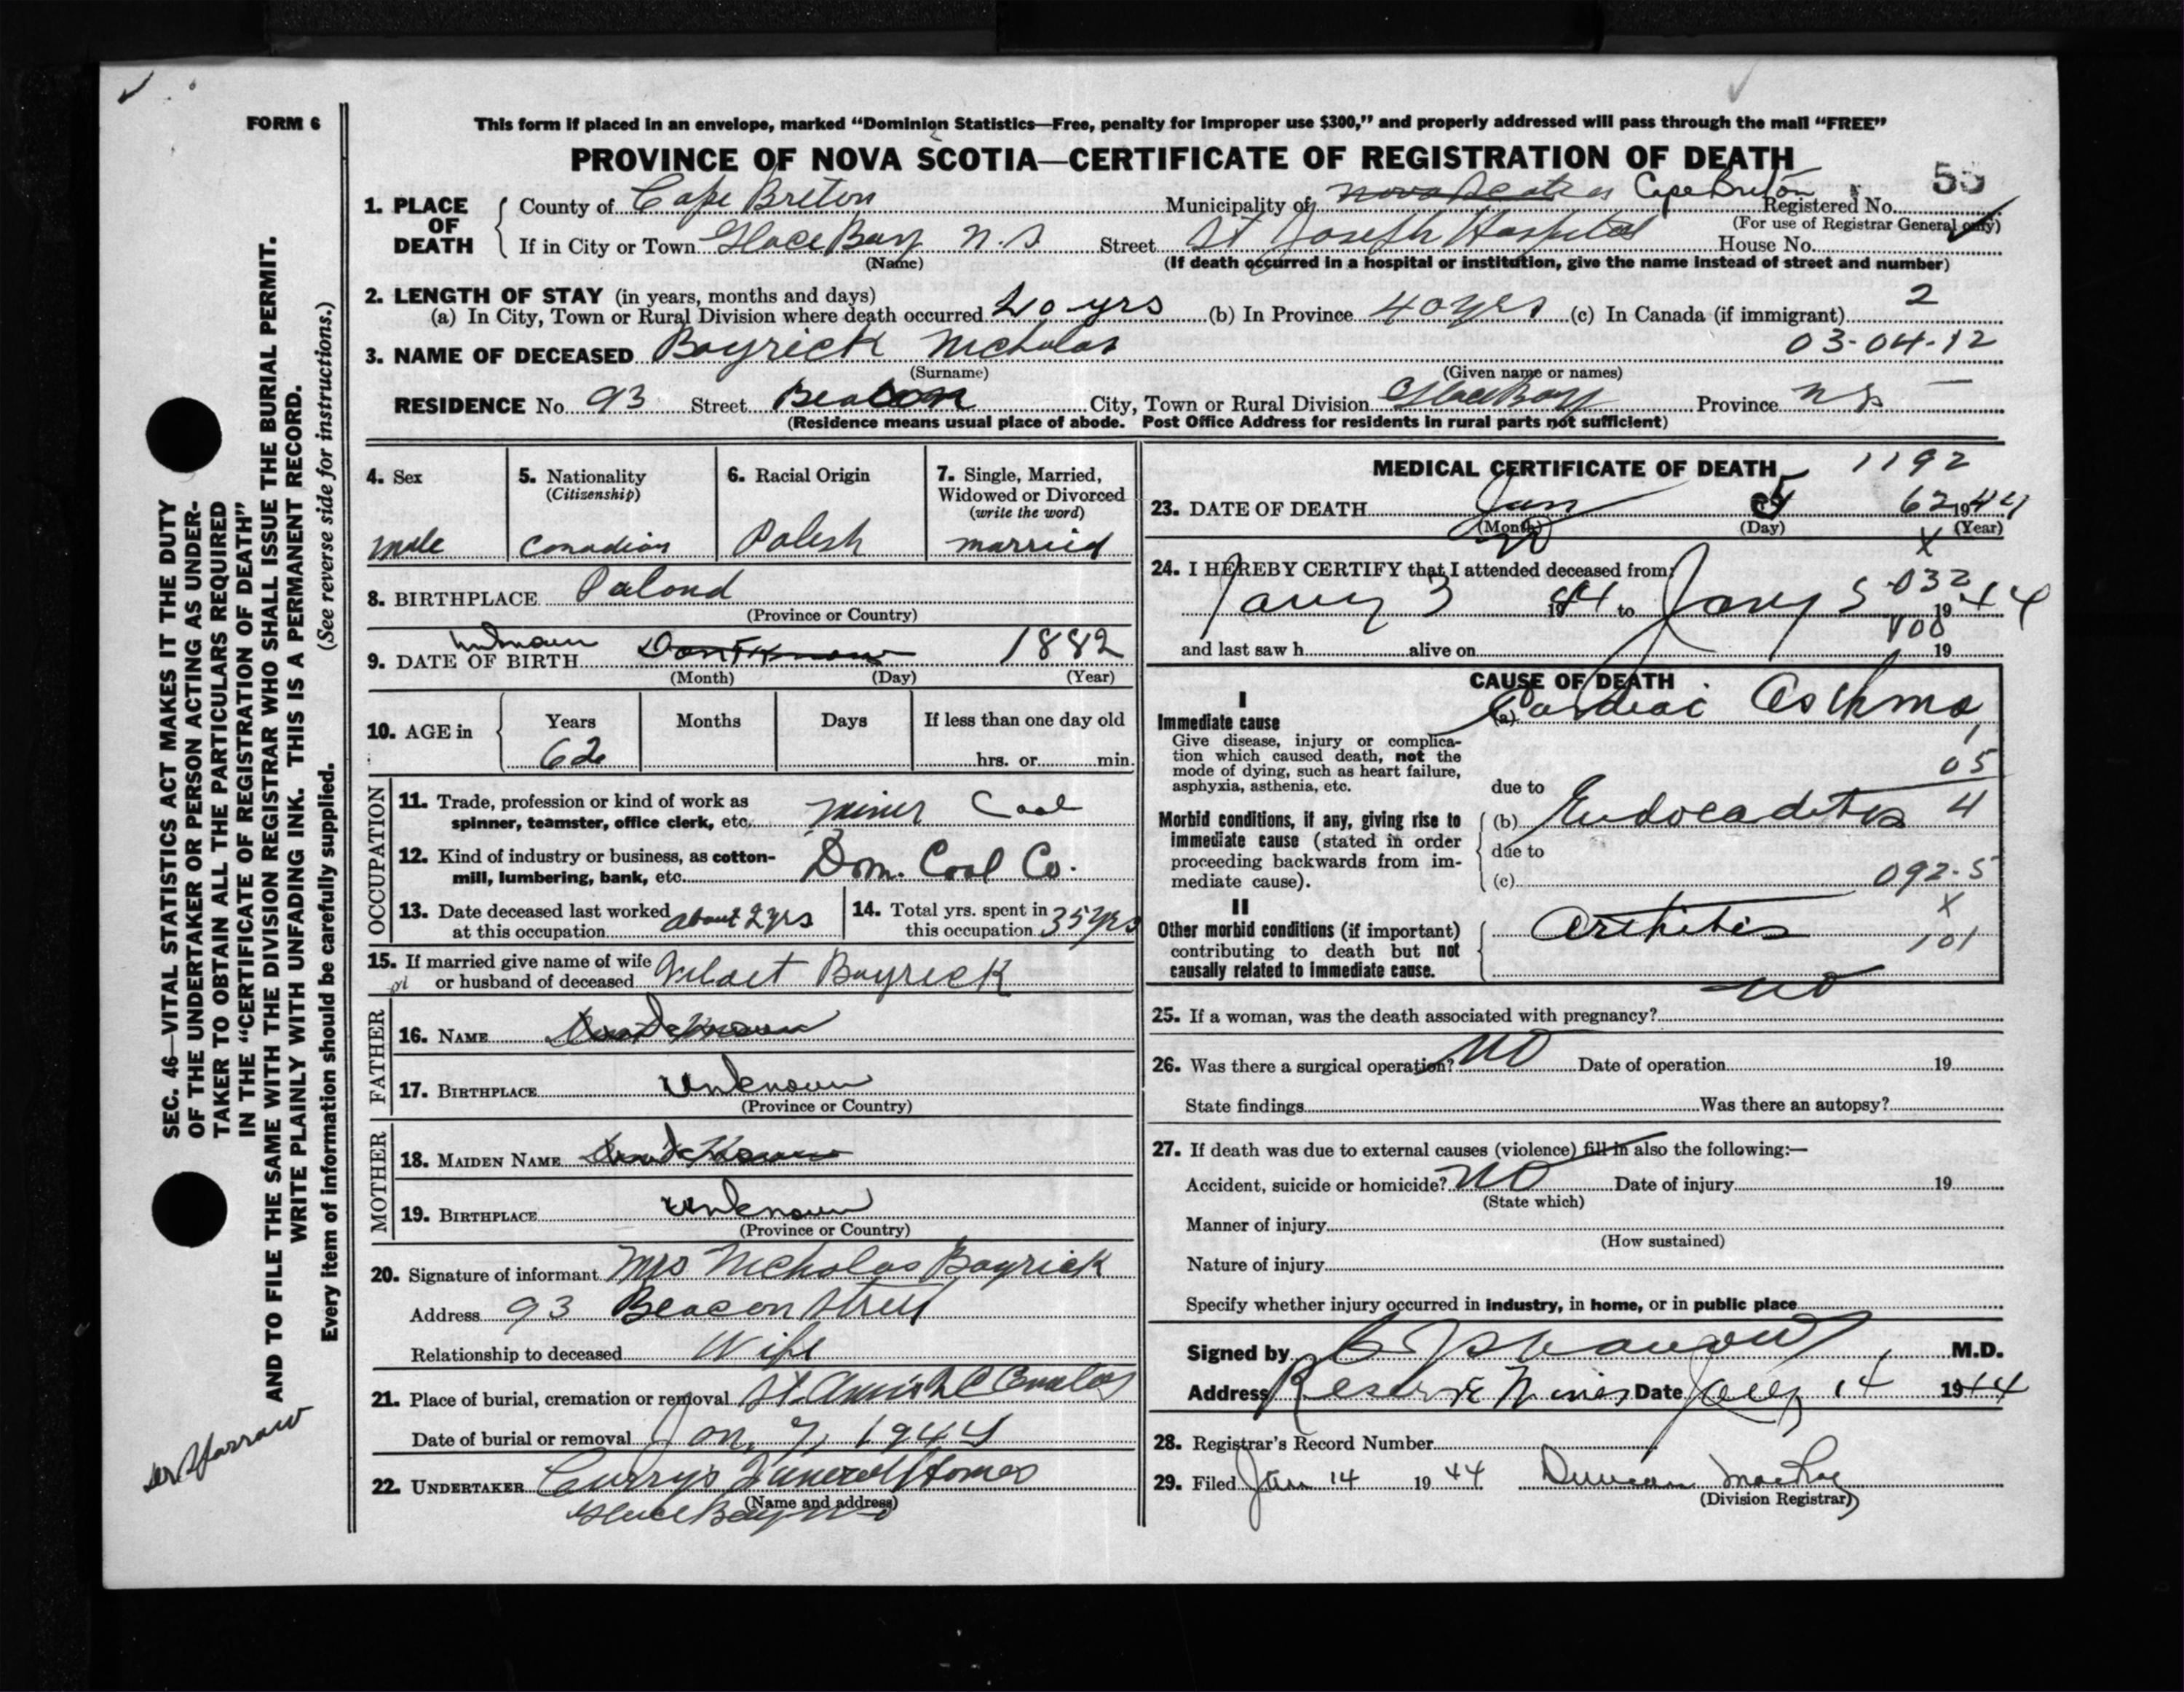 FORM 6
This form if placed in an envelope, marked “Dominion Statistics—Free, penalty for improper use $300,” and properly addressed will pass through the mail “FREE”
PROVINCE OF NOVA SCOTIA—CERTIFICATE OF REGISTRATION OF DEATH
SEC. 46—VITAL STATISTICS ACT MAKES IT THE DUTY
OF THE UNDERTAKER OR PERSON ACTING AS UNDER-
TAKER TO OBTAIN ALL THE PARTICULARS REQUIRED
IN THE “CERTIFICATE OF REGISTRATION OF DEATH”
AND TO FILE THE SAME WITH THE DIVISION REGISTRAR WHO SHALL ISSUE THE BURIAL PERMIT.
WRITE PLAINLY WITH UNFADING INK. THIS IS A PERMANENT RECORD.
Every item of information should be carefully supplied. (See reverse side for instructions.)
1. PLACE OF DEATH County of Cape Breton Municipality of Nova Scotia Cape Breton Registered No. 55
(For use of Registrar General only)
If in City or Town Glace Bay N.S. Street St Joseph Hospital House No.
(Name) (If death occurred in a hospital or institution, give the name instead of street and number)
2. LENGTH OF STAY (in years, months and days)
(a) In City, Town or Rural Division where death occurred 40 yrs (b) In Province 40 yrs (c) In Canada (if immigrant) 2
3. NAME OF DECEASED Boyrick Nicholas 03-04-12
(Surname) (Given name or names)
RESIDENCE No. 93 Street Beacon City, Town or Rural Division Glace Bay Province N S
(Residence means usual place of abode. Post Office Address for residents in rural parts not sufficient)
4. Sex
male
5. Nationality
(Citizenship)
Canadian
6. Racial Origin
Polish
7. Single, Married,
Widowed or Divorced
(write the word)
married
8. BIRTHPLACE Poland
(Province or Country)
unknown
9. DATE OF BIRTH Don't Know 1882
(Month) (Day) (Year)
10. AGE in Years Months Days If less than one day old
62 hrs. or min.
OCCUPATION
11. Trade, profession or kind of work as
spinner, teamster, office clerk, etc. miner Coal
12. Kind of industry or business, as cotton-
mill, lumbering, bank, etc. Dom. Coal Co.
13. Date deceased last worked
at this occupation about 2 yrs
14. Total yrs. spent in
this occupation 35 yrs
15. If married give name of wife
or husband of deceased Boyrick
FATHER
16. NAME Don't Know
17. BIRTHPLACE Unknown
(Province or Country)
MOTHER
18. MAIDEN NAME Don't Know
19. BIRTHPLACE Unknown
(Province or Country)
20. Signature of informant Mrs Nicholas Boyrick
Address 93 Beacon Street
Relationship to deceased Wife
21. Place of burial, cremation or removal St.
Date of burial or removal Jan, 7, 1944
22. UNDERTAKER Curry's Funeral Homes
(Name and address)
Glace Bay NS
MEDICAL CERTIFICATE OF DEATH 1192
23. DATE OF DEATH Jan 5 62 1944
(Month) (Day) (Year)
20 X
24. I HEREBY CERTIFY that I attended deceased from:
Jany 3 1944 to Jany 5 1944
032
and last saw h alive on 19
100
CAUSE OF DEATH
I
Immediate cause
Give disease, injury or complica-
tion which caused death, not the
mode of dying, such as heart failure,
asphyxia, asthenia, etc.
(a) Cardiac Asthma
1
05
due to
4
Morbid conditions, if any, giving rise to
immediate cause (stated in order
proceeding backwards from im-
mediate cause).
(b) Endocaditis
due to
(c) 092.5
X
II
Other morbid conditions (if important)
contributing to death but not
causally related to immediate cause.
Arthitis 101
25. If a woman, was the death associated with pregnancy? no
26. Was there a surgical operation? NO Date of operation 19
State findings Was there an autopsy?
27. If death was due to external causes (violence) fill in also the following:—
Accident, suicide or homicide? NO Date of injury 19
(State which)
Manner of injury
(How sustained)
Nature of injury
Specify whether injury occurred in industry, in home, or in public place
Signed by M.D.
Address Reserve Mines Date Jany 14 1944
28. Registrar's Record Number
29. Filed Jan 14 1944 Duncan
(Division Registrar)